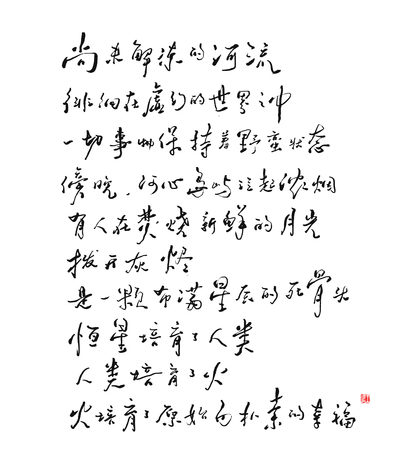 尚未解冻的河流
徘徊在虚幻的世界之中
一切事物保持着野蛮状态
傍晚，河心岛屿泛起浓烟
有人在焚烧新鲜的月光
拨开灰烬
是一颗布满星辰的死骨头
恒星培育了人类
人类培育了火
火培育了原始和朴素的幸福